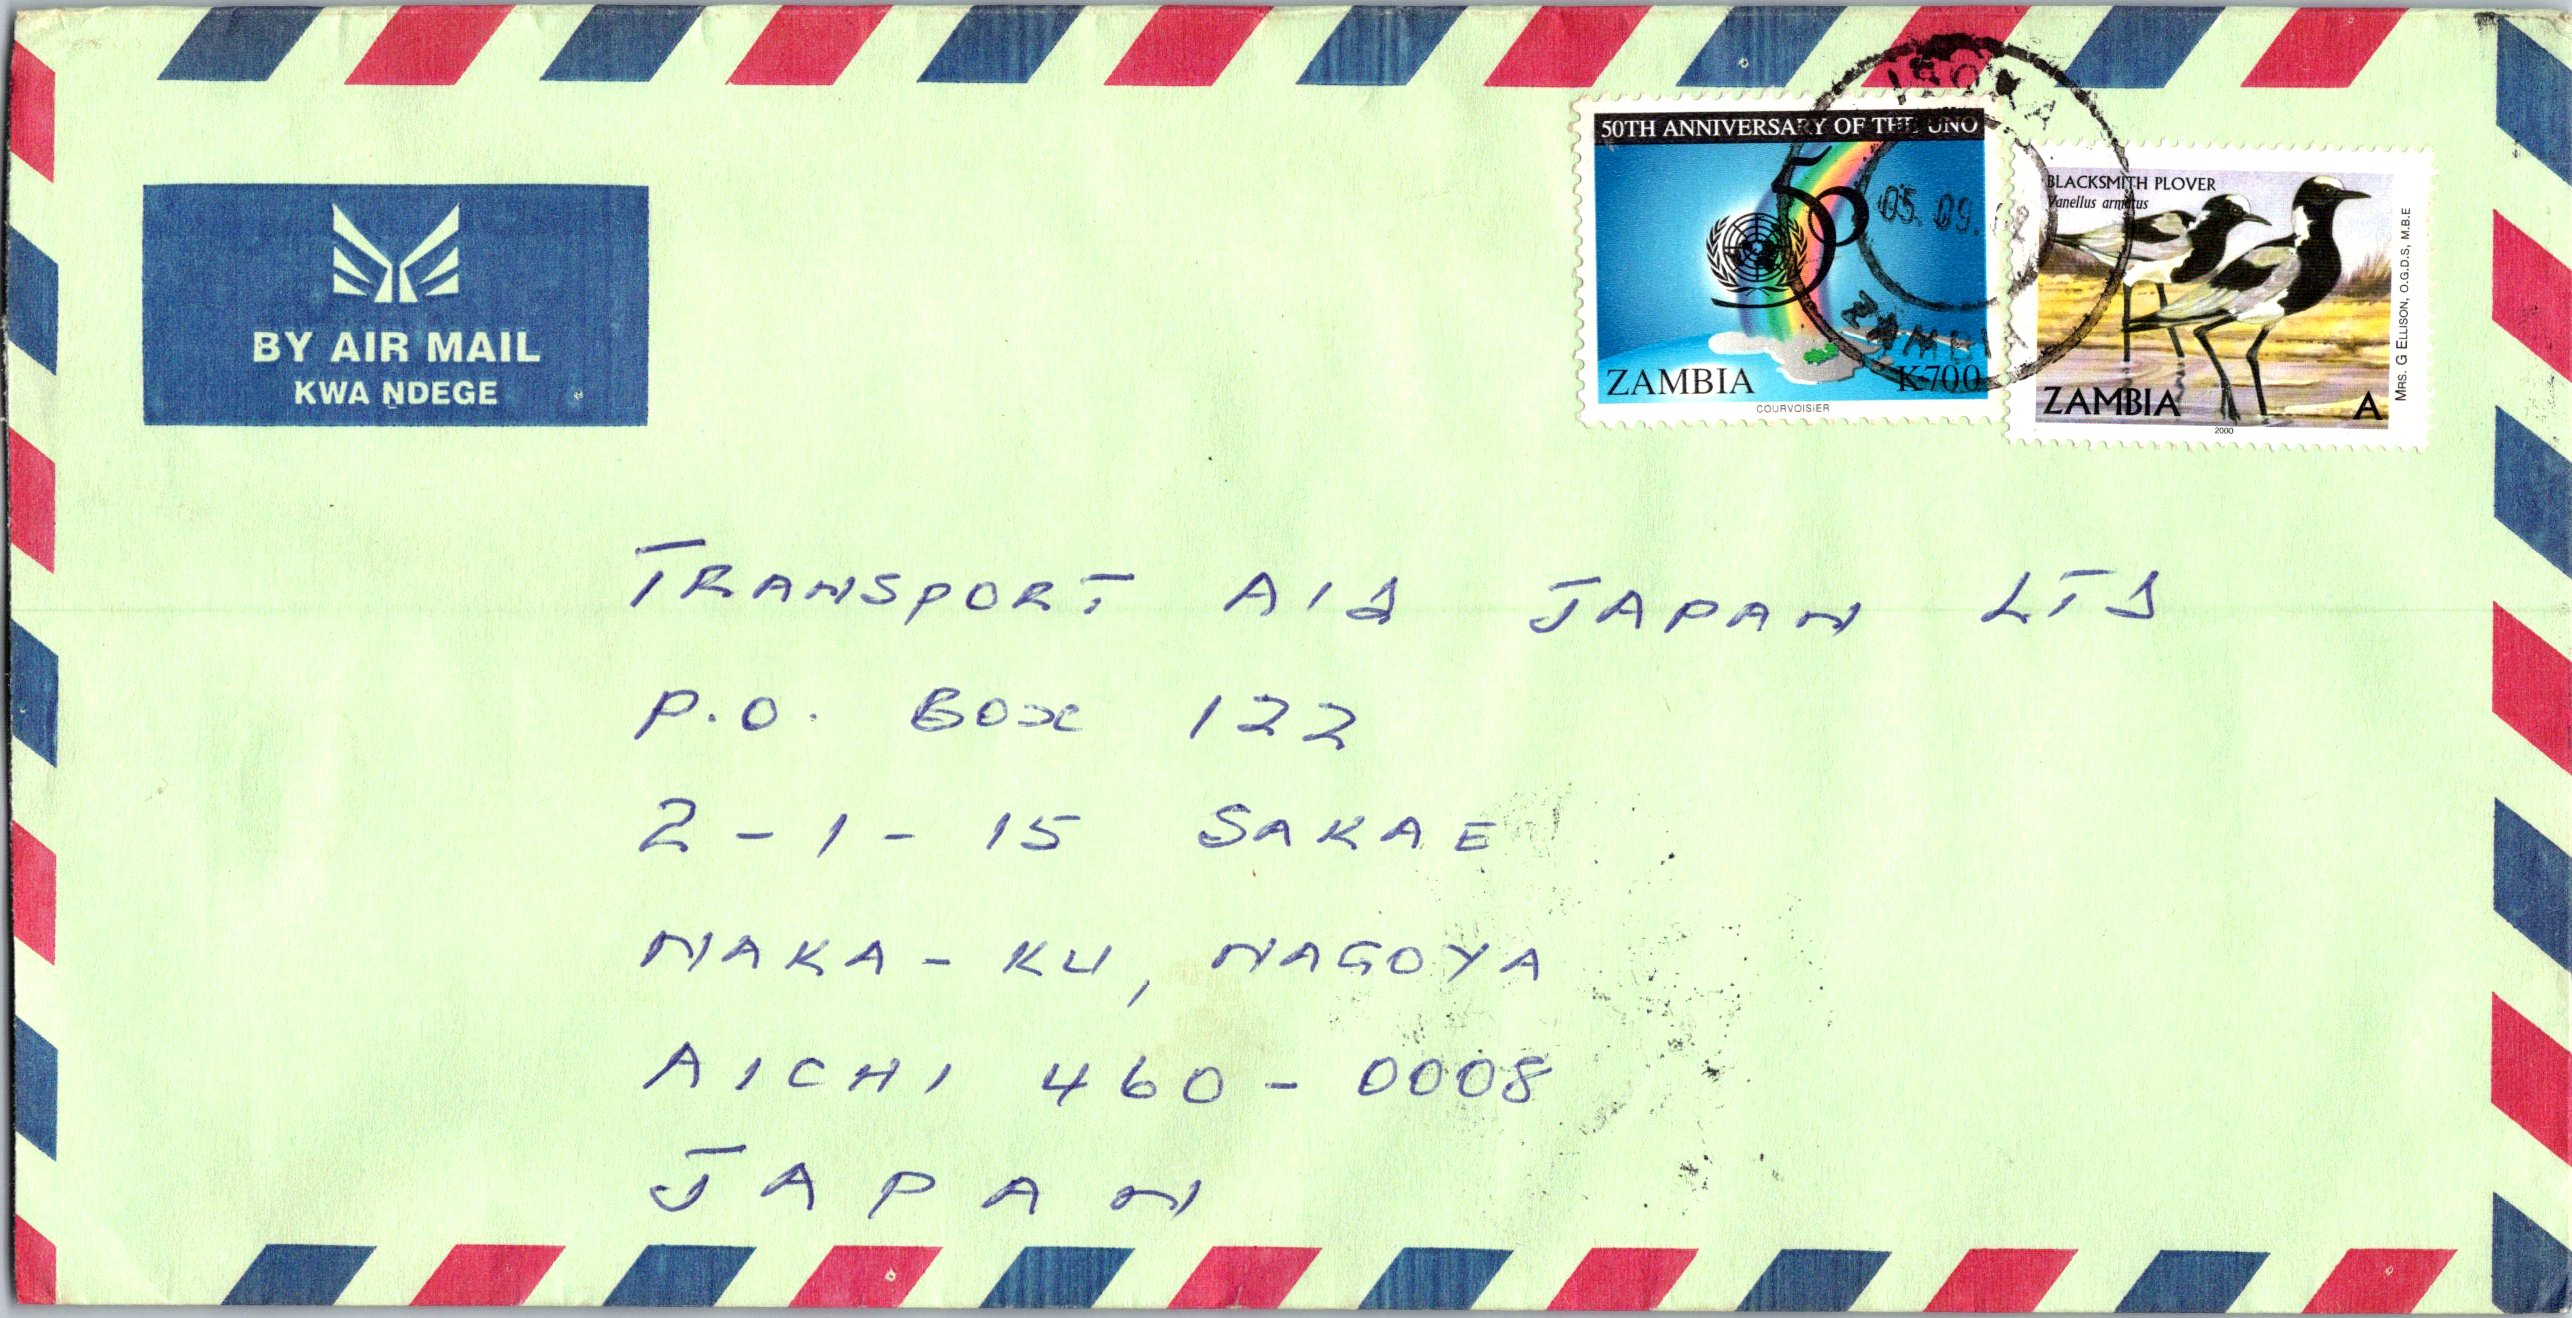 BY AIR MAIL
KWA NDEGE
50TH ANNIVERSARY OF THE UNO
50
ZAMBIA
K700
COURVOISIER
BLACKSMITH PLOVER
Vanellus armatus
ZAMBIA
A
2000
MRS. G ELLISON, O.G.D.S, M.B.E
ISOKA
05.09.
ZAMBIA
TRANSPORT AID JAPAN LTD
P.O. BOX 122
2-1-15 SAKAE
NAKA-KU, NAGOYA
AICHI 460-0008
JAPAN